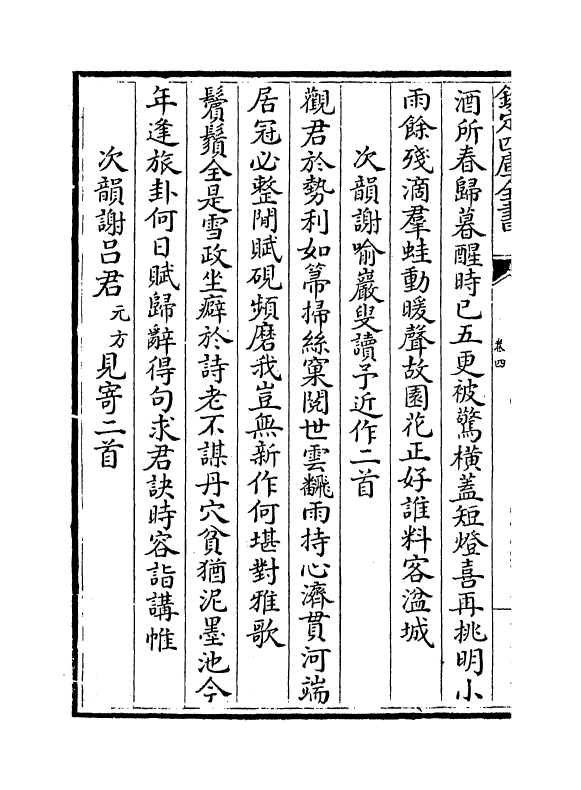 欽定四庫全書
卷四
酒所春歸暮醒時已五更被驚橫蓋短燈喜再挑明小
雨餘殘滴羣蛙動暖聲故園花正好誰料客湓城
次韻謝喻巖叟讀予近作二首
觀君於勢利如帚掃絲窠閱世雲飜雨持心濟貫河端
居冠必整閒賦硯頻磨我豈無新作何堪對雅歌
鬢鬚全是雪政坐癖於詩老不謀丹穴貧猶泥墨池今
年逢旅卦何日賦歸辭得句求君訣時容詣講帷
次韻謝呂君元方見寄二首